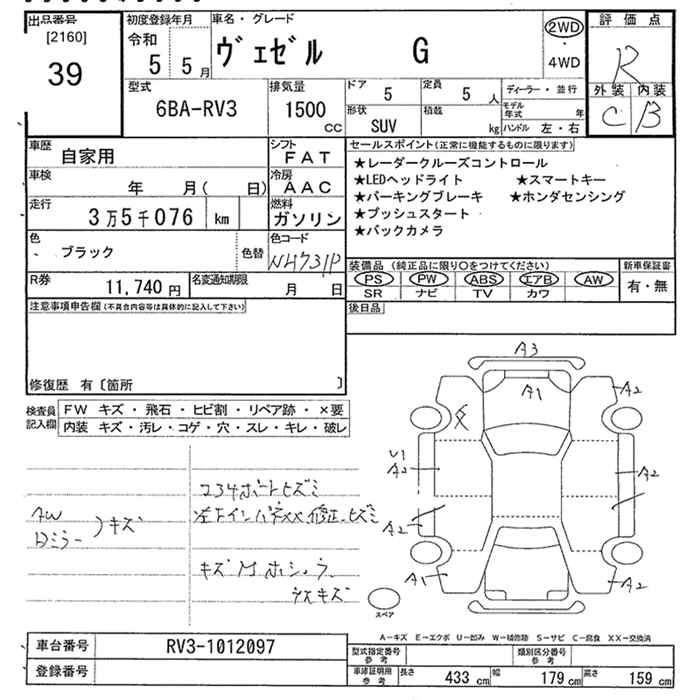 出品番号
[2160]
39
初度登録年月
令和
5 5月
車名・グレード
ヴェゼル G
2WD
・
4WD
評価点
R
外装 内装
C B
型式
6BA-RV3
排気量
1500
CC
ドア
5
定員
5 人
形状
SUV
積載
kg
ディーラー・並行
モデル年式 年
ハンドル 左・右
車歴
自家用
シフト
FAT
車検
年 月( 日)
冷房
AAC
走行
3万5千076 km
燃料
ガソリン
色
ブラック
色替
色コード
NH731P
R券
11,740 円
名変通知期限
月 日
セールスポイント(正常に機能するものに限ります)
★レーダークルーズコントロール
★LEDヘッドライト ★スマートキー
★パーキングブレーキ ★ホンダセンシング
★プッシュスタート
★バックカメラ
装備品 (純正品に限り○をつけてください)
PS PW ABS エアB AW
SR ナビ TV カワ
新車保証書
有・無
後日品
注意事項申告欄(不具合内容等は具体的に記入して下さい)
修復歴 有〔箇所 〕
検査員
記入欄
FW キズ・飛石・ヒビ割・リペア跡・×要
内装 キズ・汚レ・コゲ・穴・スレ・キレ・破レ
AW
Dミラー
)キズ
234ポートヒズミ
左下インパネXX修正、ヒズミ
キズ M ホシュウ
A3
A1
A2
U1
A2
A2
A2
A1
A2
スペア
A-キズ E-エクボ U-凹み W-補修跡 S-サビ C-腐食 XX-交換済
車台番号
RV3-1012097
登録番号
型式指定番号
参考
類別区分番号
参考
車庫証明用
参考
長さ 433 cm
幅 179 cm
高さ 159 cm